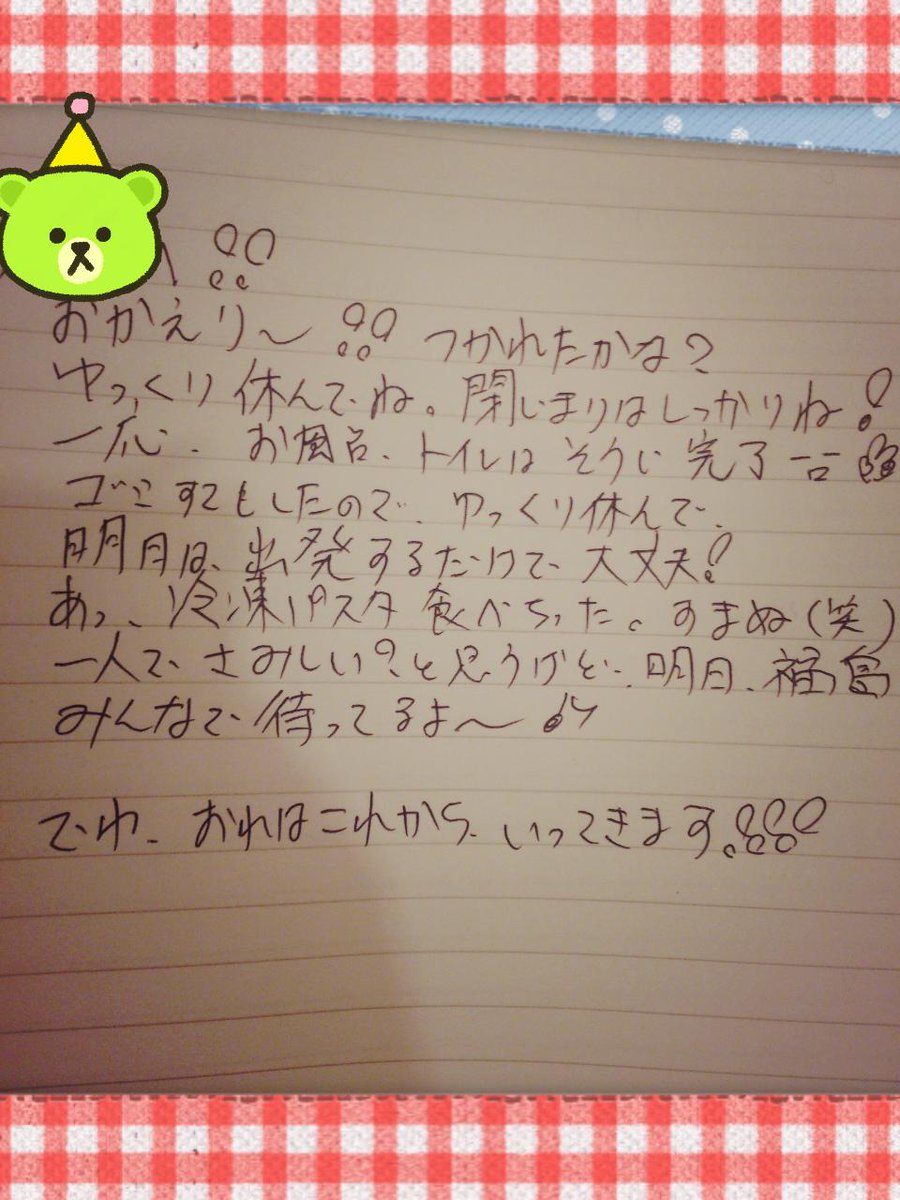 へ!!
おかえり〜!! つかれたかな?
ゆっくり休んでね。閉じまりはしっかりね!
一応、お風呂、トイレはそうじ完了
ゴミすてもしたので、ゆっくり休んで、
明日は、出発するだけで大丈夫!
あっ、冷凍パスタ食べちった。すまぬ(笑)
一人でさみしい?と思うけど、明日、福島
みんなで待ってるよ〜♪
でわ、おれはこれから、いってきます!!!